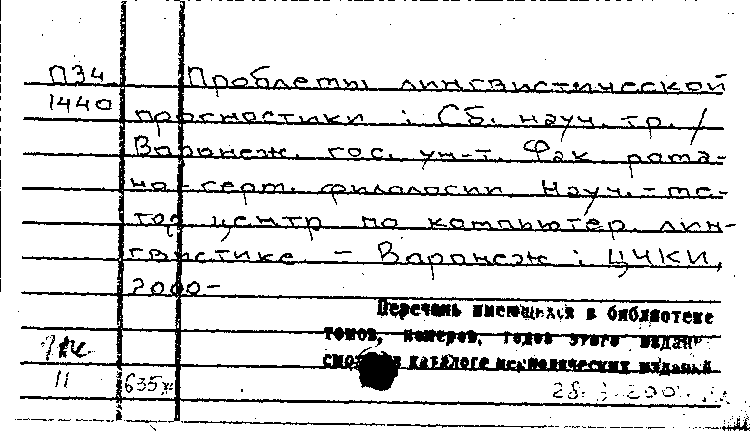 П34 Проблемы лингвистической
1440 прогностики : Сб. науч. тр. /
Варонеж. гос. ун-т. Фак рома-
но-герм. филологии Науч.-ме-
тод центр по компьютер. лин-
гвистике – Варонеж : ЦЧКИ,
2000-
Перечень имеющихся в библиотеке
томов, номеров, годов этого издания
смотри в каталоге периодических изданий
11 635